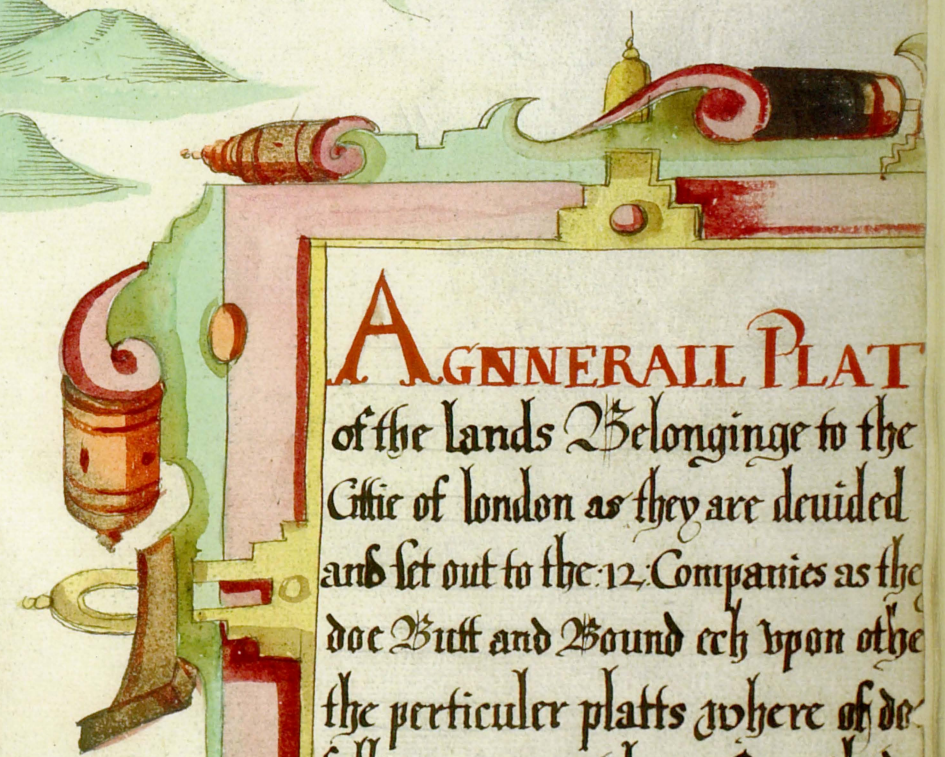 A GNNERALL PLAT
of the lands Belonginge to the
Cittie of london as they are deuided
and set out to the :12: Companies as the
doe Butt and Bound ech vpon othe
the perticuler platts where of do